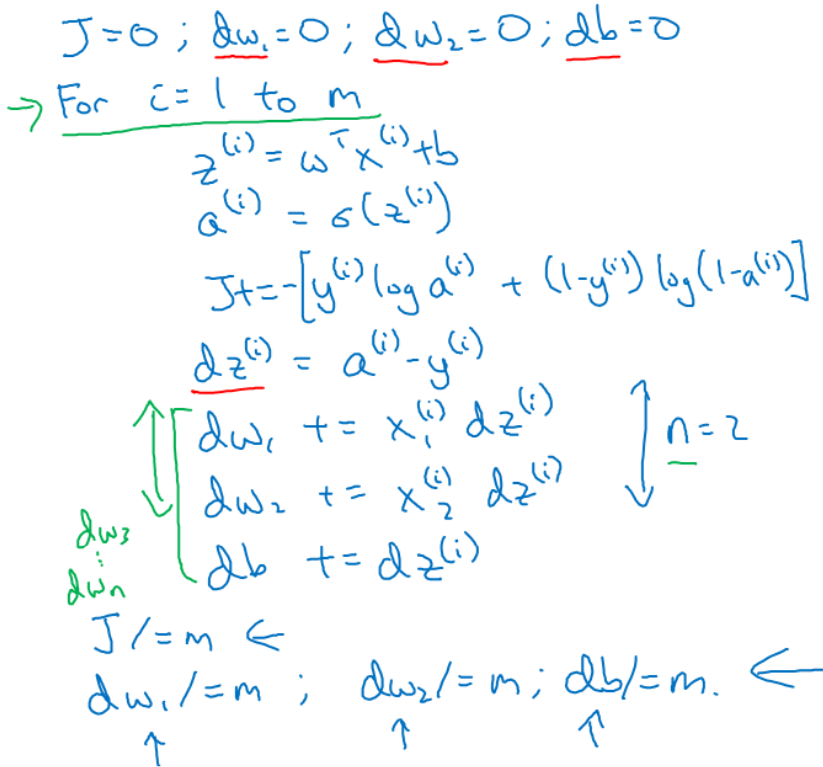 J=0 ; dw₁=0 ; dw₂=0 ; db=0
→ For i = 1 to m
z⁽ⁱ⁾ = ωᵀx⁽ⁱ⁾+b
a⁽ⁱ⁾ = σ(z⁽ⁱ⁾)
J+=-[y⁽ⁱ⁾ log a⁽ⁱ⁾ + (1-y⁽ⁱ⁾) log(1-a⁽ⁱ⁾)]
dz⁽ⁱ⁾ = a⁽ⁱ⁾-y⁽ⁱ⁾
dw₁ += x₁⁽ⁱ⁾ dz⁽ⁱ⁾
n=2
dw₂ += x₂⁽ⁱ⁾ dz⁽ⁱ⁾
dw₃
⋮
dwₙ
db += dz⁽ⁱ⁾
J /=m ←
dw₁ /=m ; dw₂ /=m ; db/=m. ←